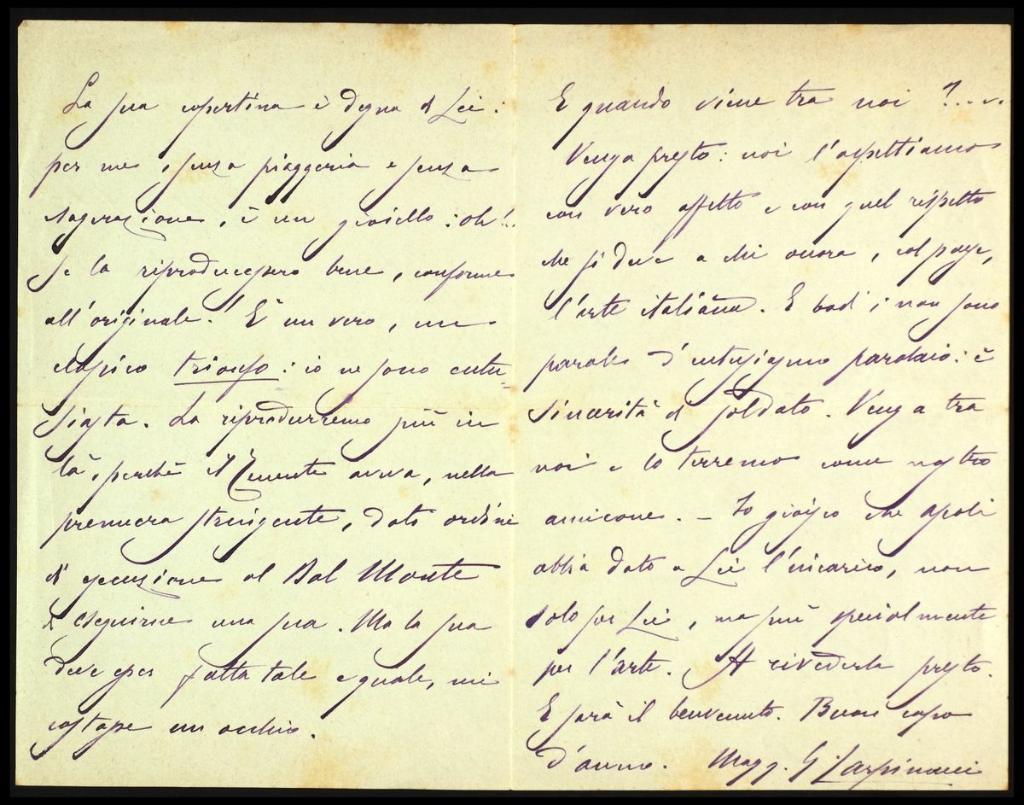 La sua copertina è degna di Lei:
per me, senza piaggeria e senza
esagerazione, è un gioiello: oh!..
se la riproducessero bene, conforme
all'originale! È un vero, un
classico trionfo: io ne sono entu-
siasta. La riprodurremo più in
là, perchè il Tenente aveva, nella
premura stringente, dato ordine
di esecuzione al Dal Monte
di eseguirne una sua. Ma la sua
deve esser fatta tale e quale, mi
costasse un occhio.
E quando viene tra noi?....
Venga presto: noi l'aspettiamo
con vero affetto e con quel rispetto
che si deve a chi onora, col paese,
l'arte italiana. E badi; non sono
parole d'entusiasmo parolaio: è
sincerità di soldato. Venga tra
noi e lo terremo come nostro
amicone. – Io gioisco che
abbia dato a Lei l'incarico, non
solo per Lei, ma più specialmente
per l'arte. A rivederla presto.
E sarà il benvenuto. Buon capo
d'anno. Magg. G.